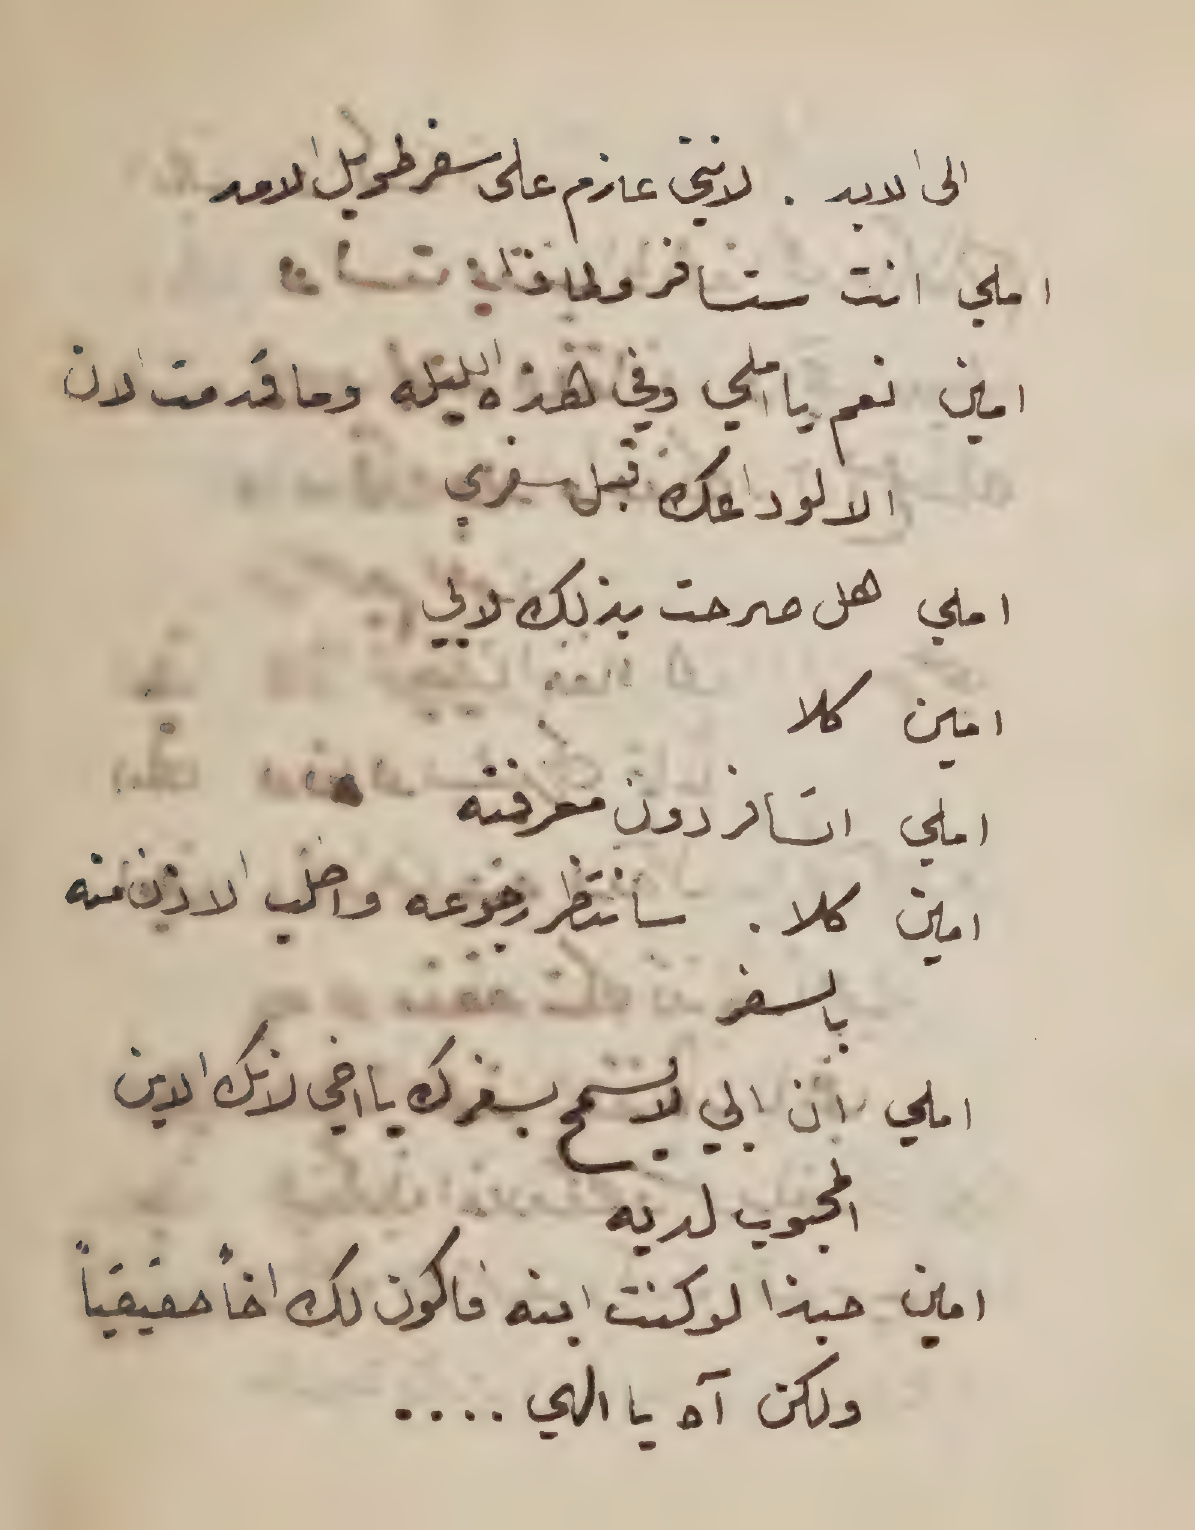 الى الابد . لانني عازم على سفر طويل الامد
املي انت ستسافر
امين نعم يا املي وفي هذه الليله وما قدمت الان
الا لوداعك قبل سفري
املي هل صرحت بذلك لابي
امين كلا
املي اتسافر دون معرفته
امين كلا . سأنتظر رجوعه واطلب الاذن منه
بالسفر
املي ان ابي لا يسمح بسفرك يا اخي لانك الابن
المحبوب لديه
امين حبذا لو كنت ابنه فاكون لك اخاً حقيقياً
ولكن آه يا الهي ....